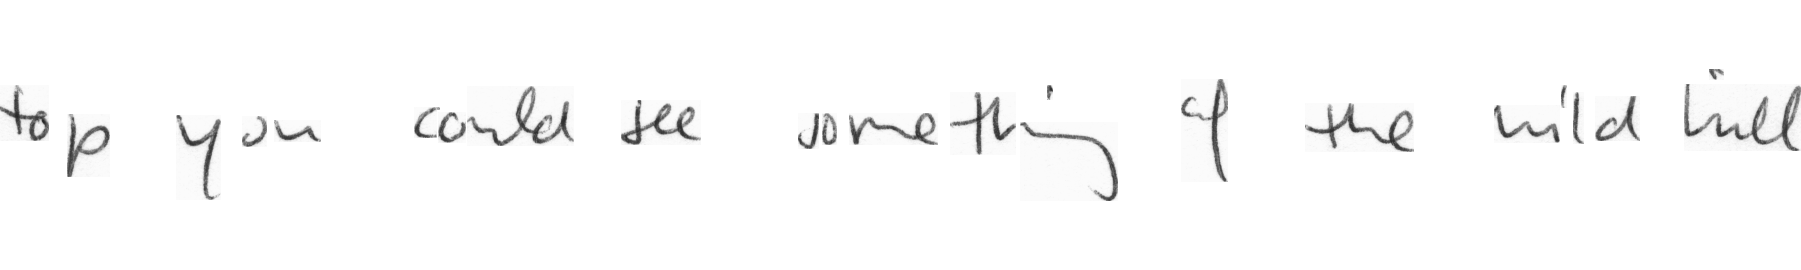 top you could see something of the wild hill